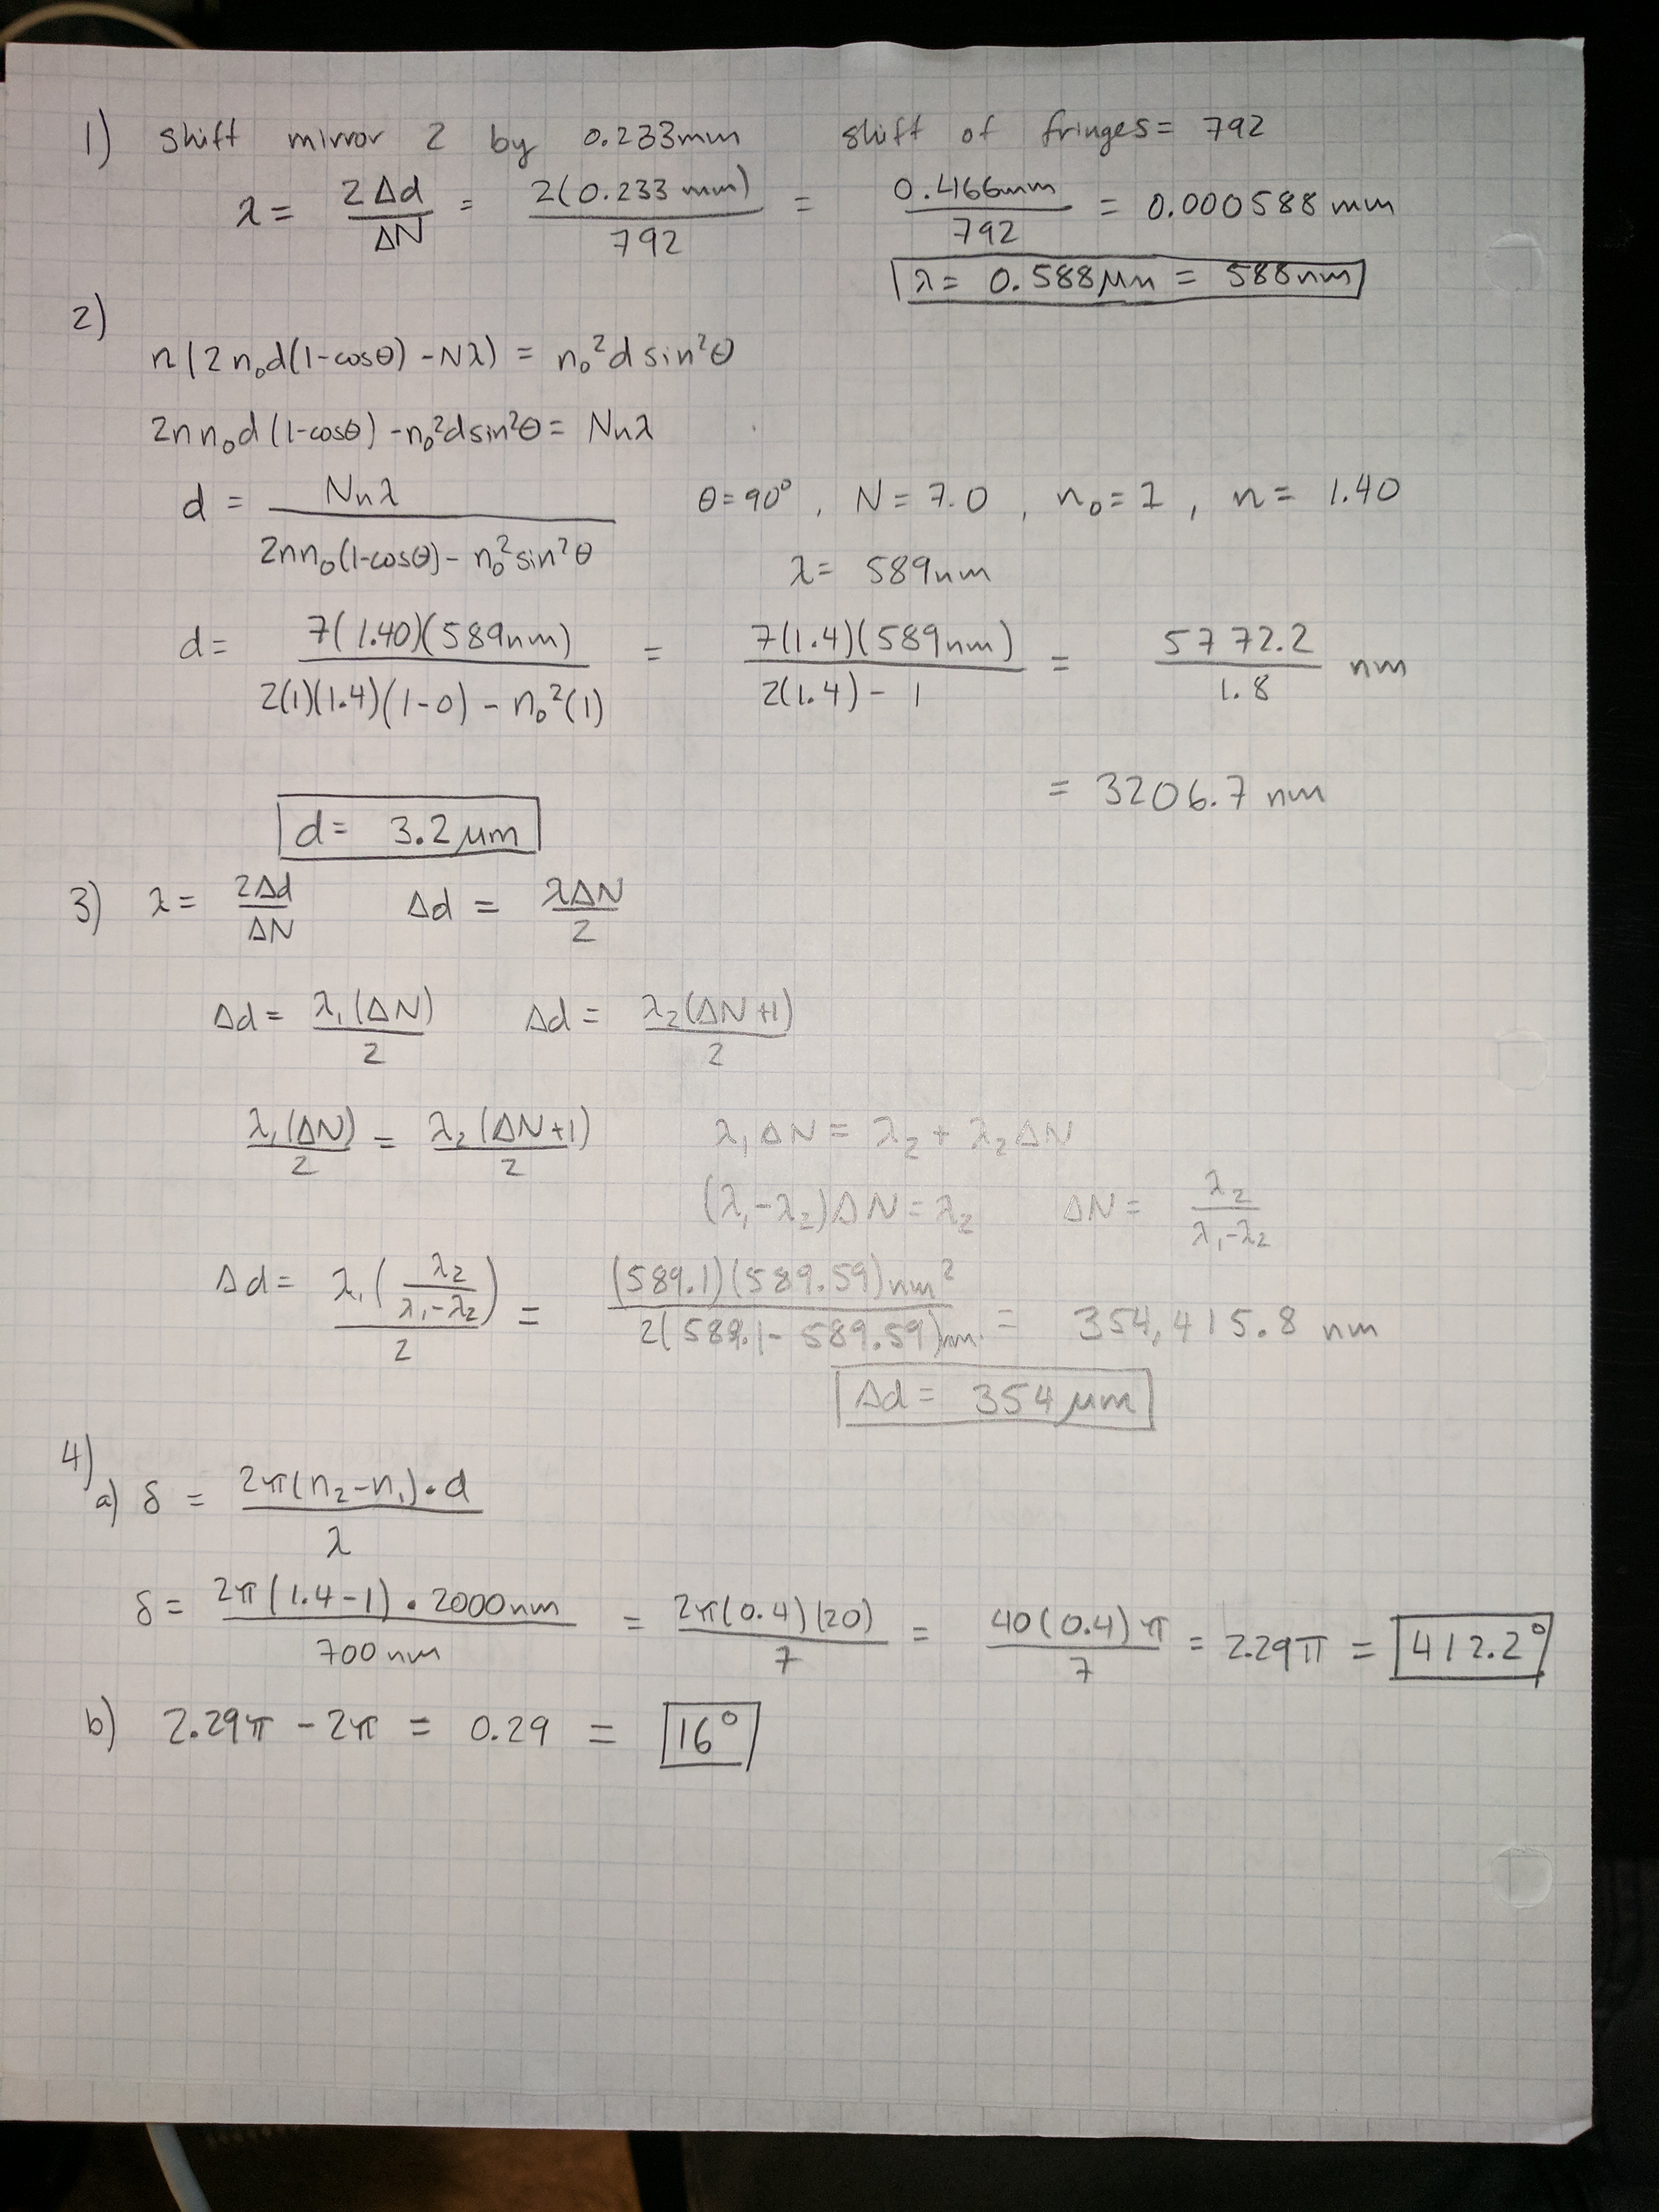 1) shift mirror 2 by 0.233mm shift of fringes = 792
λ = 2Δd/ΔN = 2(0.233 mm)/792 = 0.466mm/792 = 0.000588 mm
λ = 0.588μm = 588nm
2)
n(2n₀d(1-cosθ) - Nλ) = n₀²d sin²θ
2nn₀d(1-cosθ) - n₀²dsin²θ = Nnλ
d = Nnλ/(2nn₀(1-cosθ) - n₀²sin²θ) θ = 90°, N = 7.0, n₀ = 1, n = 1.40
λ = 589nm
d = 7(1.40)(589nm)/(2(1)(1.4)(1-0) - n₀²(1)) = 7(1.4)(589nm)/(2(1.4) - 1) = 5772.2/1.8 nm
= 3206.7 nm
d = 3.2μm
3) λ = 2Δd/ΔN Δd = λΔN/2
Δd = λ₁(ΔN)/2 Δd = λ₂(ΔN+1)/2
λ₁(ΔN)/2 = λ₂(ΔN+1)/2 λ₁ΔN = λ₂ + λ₂ΔN
(λ₁-λ₂)ΔN = λ₂ ΔN = λ₂/(λ₁-λ₂)
Δd = λ₁(λ₂/(λ₁-λ₂))/2 = (589.1)(589.59)nm²/2(589.1 - 589.59)nm = 354,415.8 nm
Δd = 354μm
4)
a) δ = 2π(n₂-n₁)·d/λ
δ = 2π(1.4-1)·2000nm/700nm = 2π(0.4)(20)/7 = 40(0.4)π/7 = 2.29π = 412.2°
b) 2.29π - 2π = 0.29 = 16°